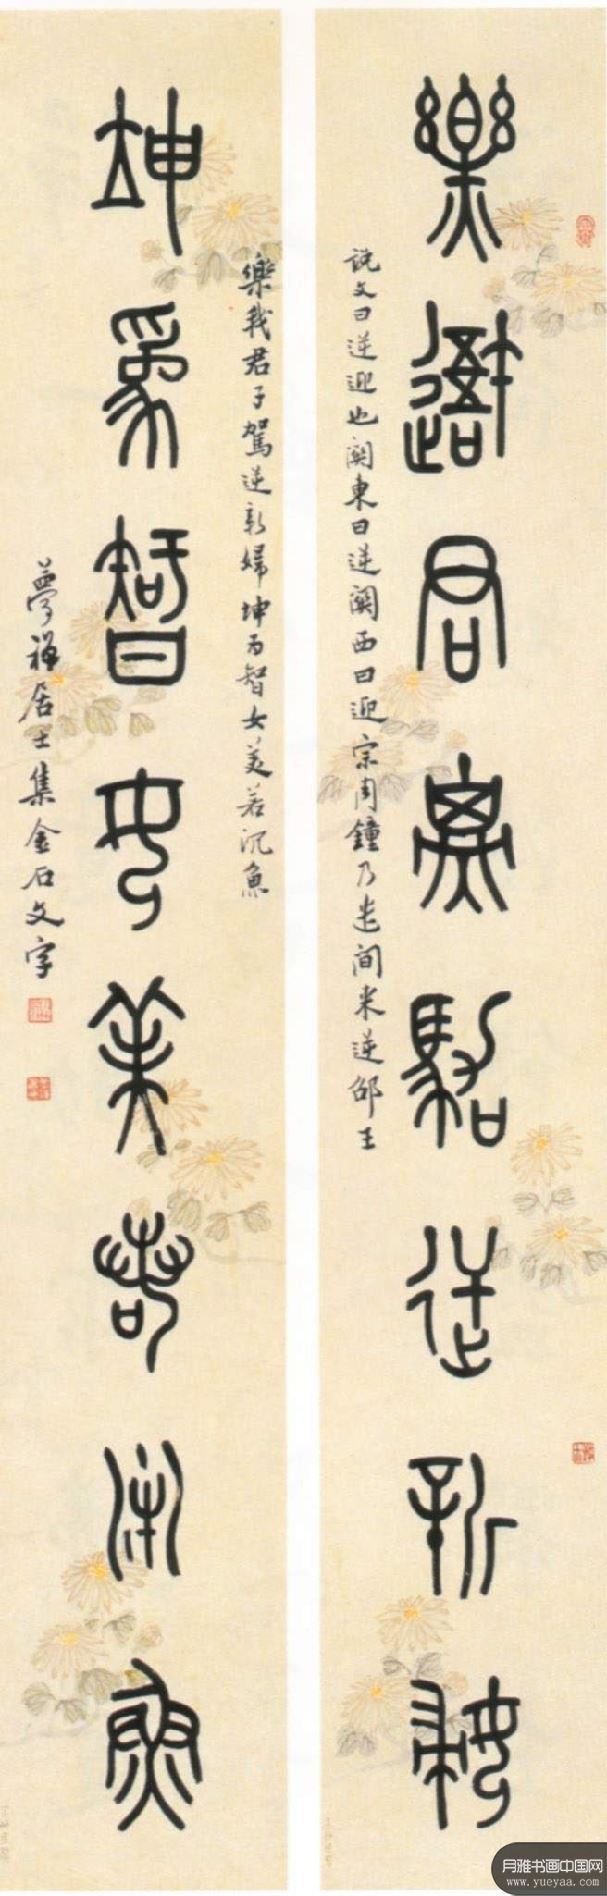 樂我君子駕逆新婦
說文曰逆迎也關東曰逆關西曰迎宗周鐘乃遣間來逆邵王
樂我君子駕逆新婦坤为智女美若沉魚
坤為智女美若沉魚
夢禪居士集金石文字
月雅书画中国网
www.yueyaa.com